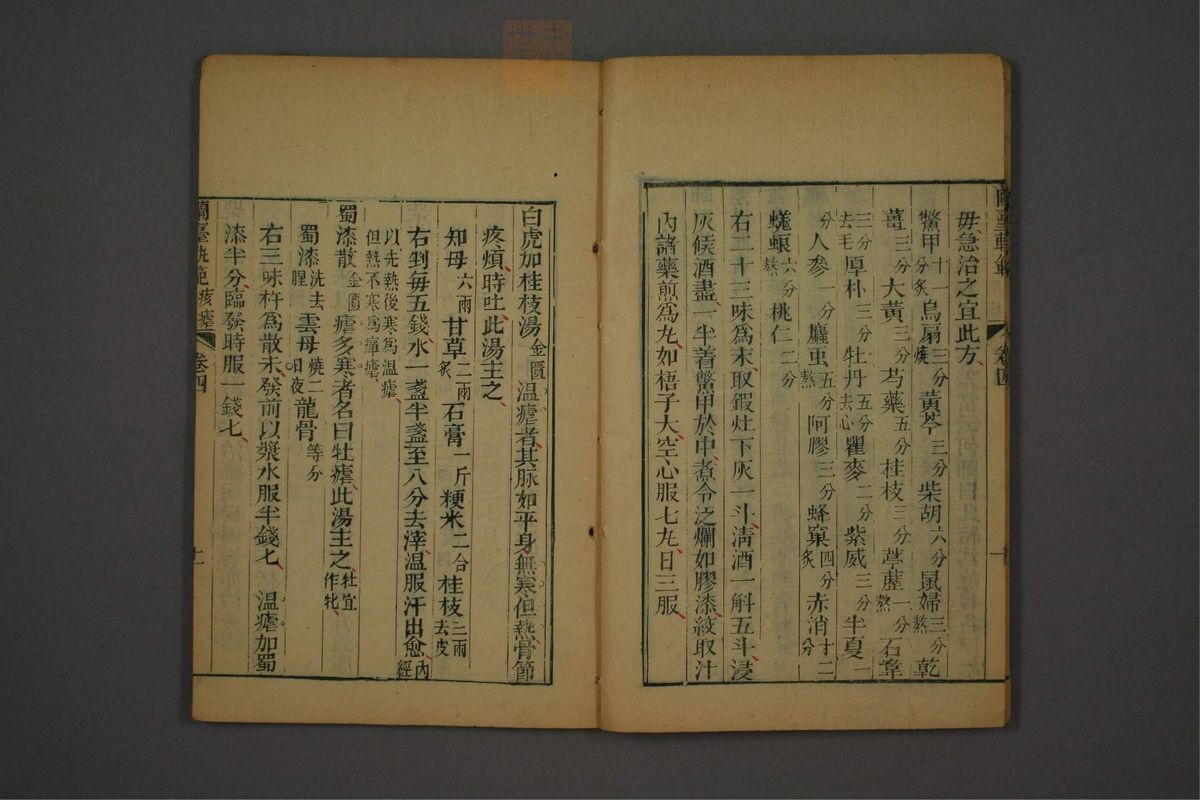 毋急治之宜此方
鱉甲十一分炙烏扇三分燒黃芩三分柴胡六分鼠婦三分熬乾
薑三分大黃三分芍藥五分桂枝三分葶藶一分熬石韋
三分去毛厚朴三分牡丹五分去心瞿麥二分紫威三分半夏一
分人參一分䗪虫五分熬阿膠三分蜂窠四分炙赤消十二分
蜣蜋六分熬桃仁二分
右二十三味爲末取鍜灶下灰一斗淸酒一斛五斗浸
灰候酒盡一半着鱉甲於中煮令泛爛如膠漆絞取汁
內諸藥煎爲丸如梧子大空心服七丸日三服
卷四
白虎加桂枝湯金匱溫瘧者其脉如平身無寒但熱骨節
疼煩時吐此湯主之
知母六兩甘草二兩炙石膏一斤粳米二合桂枝三兩去皮
右剉每五錢水一盞半盞至八分去滓溫服汗出愈內經
以先熱後寒爲溫瘧
但熱不寒爲癉瘧
蜀漆散金匱瘧多寒者名曰牡瘧此湯主之牡宜作牝
蜀漆洗去腥雲母燒二日夜龍骨等分
右三味杵爲散未發前以漿水服半錢匕溫瘧加蜀
漆半分臨發時服一錢匕
蘭臺軌範痎瘧卷四